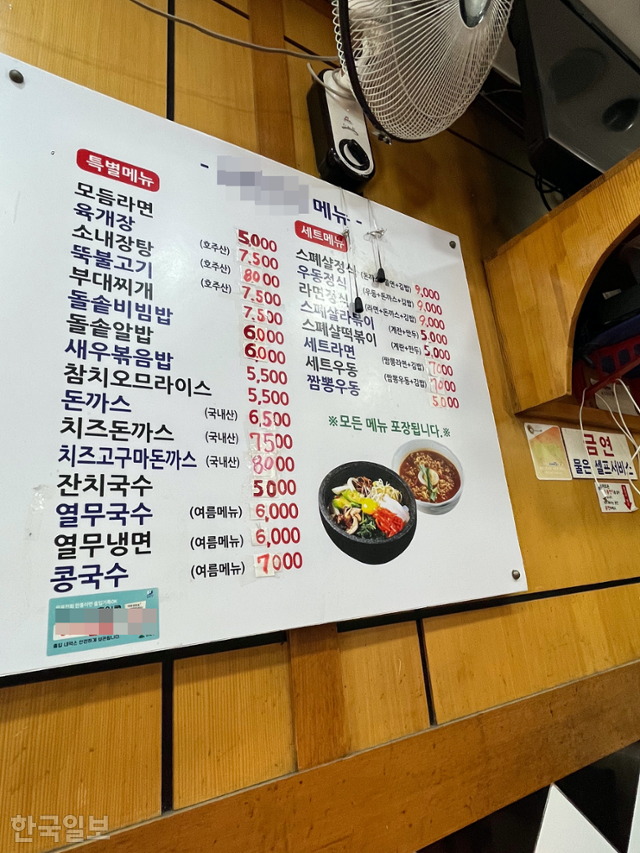 특별메뉴
- 메뉴 -
모듬라면 5,000
육개장 (호주산) 7,500
소내장탕 (호주산) 8000
뚝불고기 (호주산) 7,500
부대찌개 7,500
돌솥비빔밥 6,000
돌솥알밥 6,000
새우볶음밥 5,500
참치오므라이스 5,500
돈까스 (국내산) 6,500
치즈돈까스 (국내산) 7500
치즈고구마돈까스 (국내산) 8000
잔치국수 5000
열무국수 (여름메뉴) 6,000
열무냉면 (여름메뉴) 6,000
콩국수 (여름메뉴) 7000
세트메뉴
스페샬정식 9,000
우동정식 (우동+돈까스+김밥) 9,000
라면정식 (라면+돈까스+김밥) 9,000
스페샬라볶이 (계란+만두) 5,000
스페샬떡볶이 (계란+만두) 5,000
세트라면 (짬뽕라면+김밥) 7000
세트우동 (짬뽕우동+김밥) 7000
짬뽕우동 5000
※모든 메뉴 포장됩니다.※
금연
물은 셀프서비스
한국일보